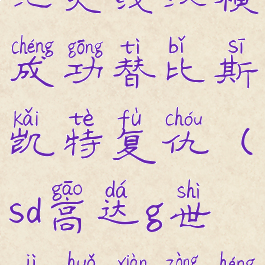 chéng gōng tì bǐ sī
成功替比斯
kǎi tè fù chóu
凯特复仇（
gāo dá shì
sd高达g世
jì huǒ xiàn zòng héng